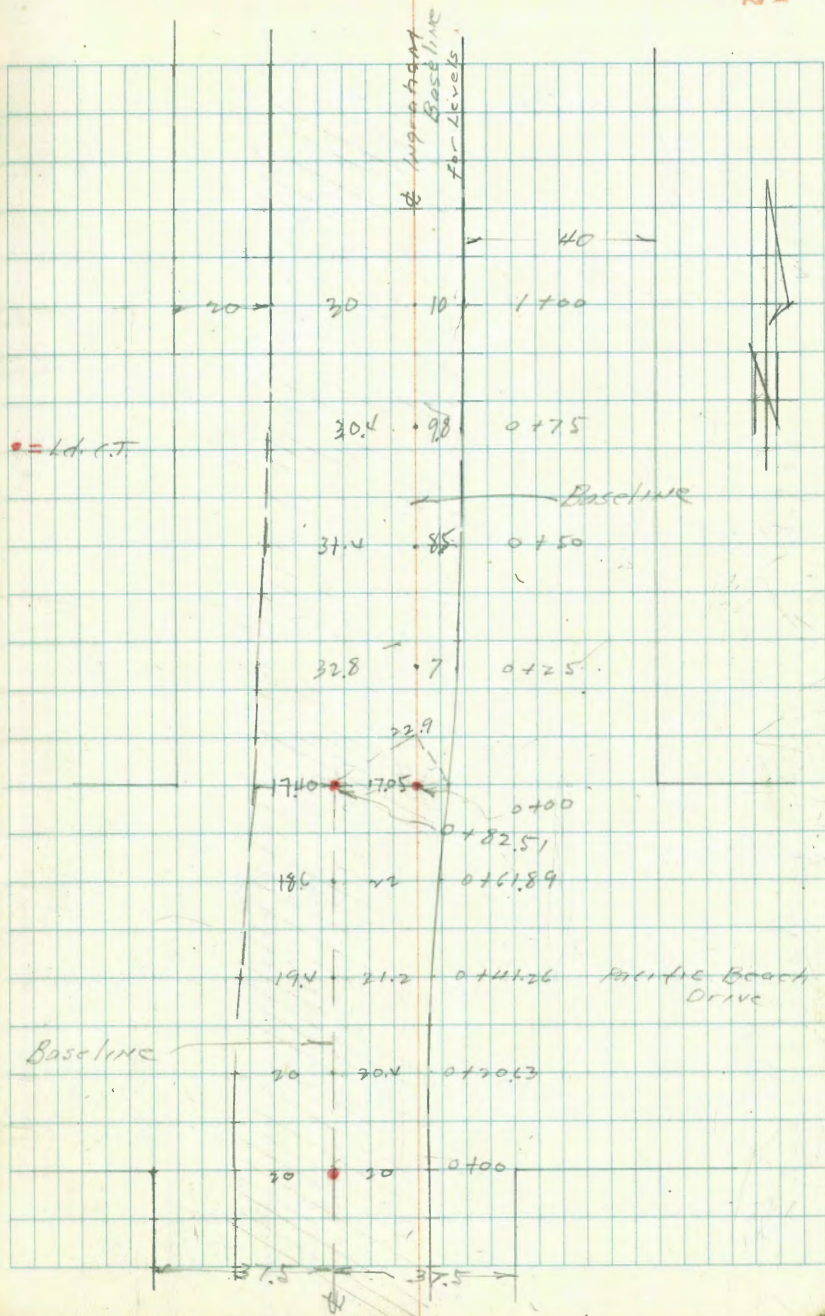 ℄ Ingraham
Baseline
for Levels
40
20 30 10 1+00
30.4 9.8 0+75
• = Ld. C.T.
Baseline
31.4 8.5 0+50
32.8 7 0+25
22.9
17.40 17.05
0+00
0+82.51
18.6 22 0+61.89
19.4 21.2 0+41.26 Pacific Beach
Drive
Baseline
20 20.4 0+20.63
20 20 0+00
37.5 37.5
℄